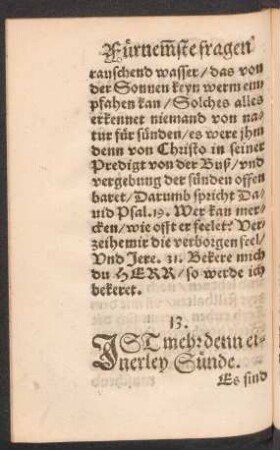 Fürnemste fragen
rauschend wasser / das von
der Sonnen keyn werm em
pfahen kan / Solches alles
erkennet niemand von na⸗
tur für sünden / es were jhm
denn von Christo in seiner
Predigt von der Buß / vnd
vergebung der sünden offen
baret / Darumb spricht Da⸗
uid Psal. 19. Wer kan mer⸗
cken / wie offt er feelet? Ver⸗
zeihe mir die verborgen feel /
Vnd Jere. 31. Bekere mich
du HERR / so werde ich
bekeret.
13.
IST mehr denn ei⸗
nerley Sünde.
Es sind